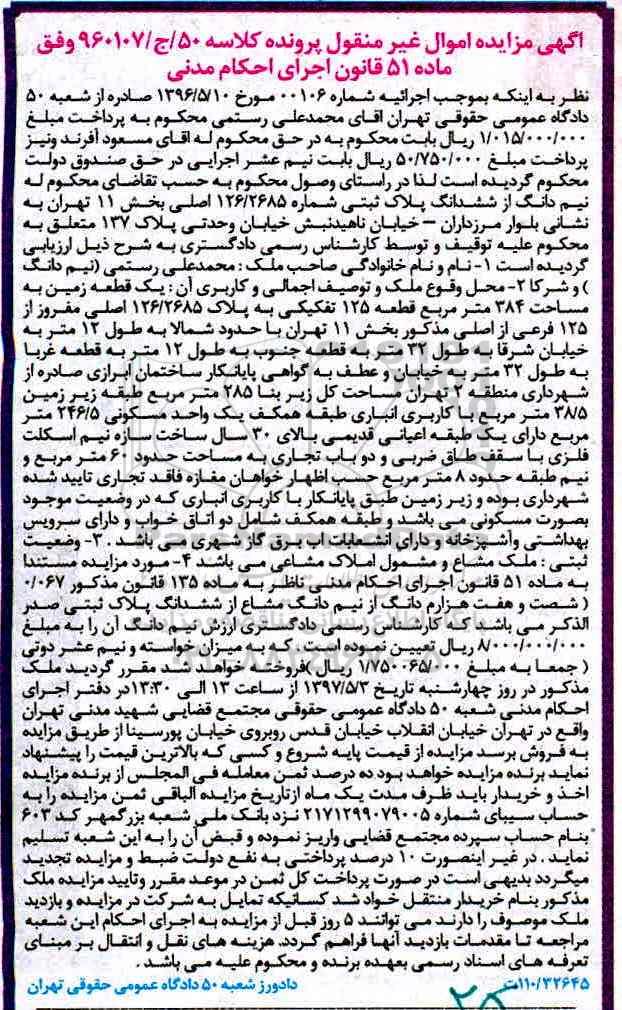 آگهی مزایده اموال غیر منقول پرونده کلاسه ۵۰/ج/۹۶۰۱۰۷ وفق
ماده ۵۱ قانون اجرای احکام مدنی
نظر به اینکه بموجب اجرائیه شماره ۰۰۱۰۶ مورخ ۱۳۹۶/۵/۱۰ صادره از شعبه ۵۰
دادگاه عمومی حقوقی تهران اقای محمدعلی رستمی محکوم به پرداخت مبلغ
۱/۰۱۵/۰۰۰/۰۰۰ ریال بابت محکوم به در حق محکوم له اقای مسعود آفرند ونیز
پرداخت مبلغ ۵۰/۷۵۰/۰۰۰ ریال بابت نیم عشر اجرایی در حق صندوق دولت
محکوم گردیده است لذا در راستای وصول محکوم به حسب تقاضای محکوم له
نیم دانگ از ششدانگ پلاک ثبتی شماره ۱۲۶/۲۶۸۵ اصلی بخش ۱۱ تهران به
نشانی بلوار مرزداران – خیابان ناهیدنبش خیابان وحدتی پلاک ۱۳۷ متعلق به
محکوم علیه توقیف و توسط کارشناس رسمی دادگستری به شرح ذیل ارزیابی
گردیده است ۱- نام و نام خانوادگی صاحب ملک : محمدعلی رستمی (نیم دانگ
) و شرکا ۲- محل وقوع ملک و توصیف اجمالی و کاربری آن : یک قطعه زمین به
مساحت ۳۸۴ متر مربع قطعه ۱۲۵ تفکیکی به پلاک ۱۲۶/۲۶۸۵ اصلی مفروز از
۱۲۵ فرعی از اصلی مذکور بخش ۱۱ تهران با حدود شمالا به طول ۱۲ متر به
خیابان شرقا به طول ۳۲ متر به قطعه جنوب به طول ۱۲ متر به قطعه غربا
به طول ۳۲ متر به خیابان و عطف به گواهی پایانکار ساختمان ابرازی صادره از
شهرداری منطقه ۲ تهران مساحت کل زیر بنا ۲۸۵ متر مربع طبقه زیر زمین
۳۸/۵ متر مربع با کاربری انباری طبقه همکف یک واحد مسکونی ۲۴۶/۵ متر
مربع دارای یک طبقه اعیانی قدیمی بالای ۳۰ سال ساخت سازه نیم اسکلت
فلزی با سقف طاق ضربی و دو باب تجاری به مساحت حدود ۶۰ متر مربع و
نیم طبقه حدود ۸ متر مربع حسب اظهار خواهان مغازه فاقد تجاری تایید شده
شهرداری بوده و زیر زمین طبق پایانکار با کاربری انباری که در وضعیت موجود
بصورت مسکونی می باشد و طبقه همکف شامل دو اتاق خواب و دارای سرویس
بهداشتی وآشپزخانه و دارای انشعابات اب برق گاز شهری می باشد . ۳- وضعیت
ثبتی : ملک مشاع و مشمول املاک مشاعی می باشد ۴- مورد مزایده مستندا
به ماده ۵۱ قانون اجرای احکام مدنی ناظر به ماده ۱۳۵ قانون مذکور ۰/۰۶۷
( شصت و هفت هزارم دانگ از نیم دانگ مشاع از ششدانگ پلاک ثبتی صدر
الذکر می باشد که کارشناس رسمی دادگستری ارزش نیم دانگ آن را به مبلغ
۸/۰۰۰/۰۰۰/۰۰۰ ریال تعیین نموده است که به میزان خواسته و نیم عشر دوتی
( جمعا به مبلغ ۱/۷۵۰۰۶۵/۰۰۰ ریال )فروخته خواهد شد مقرر گردید ملک
مذکور در روز چهارشنبه تاریخ ۱۳۹۷/۵/۳ از ساعت ۱۳ الی ۱۳:۳۰در دفتر اجرای
احکام مدنی شعبه ۵۰ دادگاه عمومی حقوقی مجتمع قضایی شهید مدنی تهران
واقع در تهران خیابان انقلاب خیابان قدس روبروی خیابان پورسینا از طریق مزایده
به فروش برسد مزایده از قیمت پایه شروع و کسی که بالاترین قیمت را پیشنهاد
نماید برنده مزایده خواهد بود ده درصد ثمن معامله فی المجلس از برنده مزایده
اخذ و خریدار باید ظرف مدت یک ماه ازتاریخ مزایده الباقی ثمن مزایده را به
حساب سیبای شماره ۲۱۷۱۲۹۹۰۷۹۰۰۵ نزد بانک ملی شعبه بزرگمهر کد ۶۰۳
بنام حساب سپرده مجتمع قضایی واریز نموده و قبض آن را به این شعبه تسلیم
نماید . در غیر اینصورت ۱۰ درصد پرداختی به نفع دولت ضبط و مزایده تجدید
میگردد بدیهی است در صورت پرداخت کل ثمن در موعد مقرر وتایید مزایده ملک
مذکور بنام خریدار منتقل خواد شد کسانیکه تمایل به شرکت در مزایده و بازدید
ملک موصوف را دارند می توانند ۵ روز قبل از مزایده به اجرای احکام این شعبه
مراجعه تا مقدمات بازدید آنها فراهم گردد. هزینه های نقل و انتقال بر مبنای
تعرفه های اسناد رسمی بعهده برنده و محکوم علیه می باشد .
۱۱۰/۳۲۶۴۵ت دادورز شعبه ۵۰ دادگاه عمومی حقوقی تهران